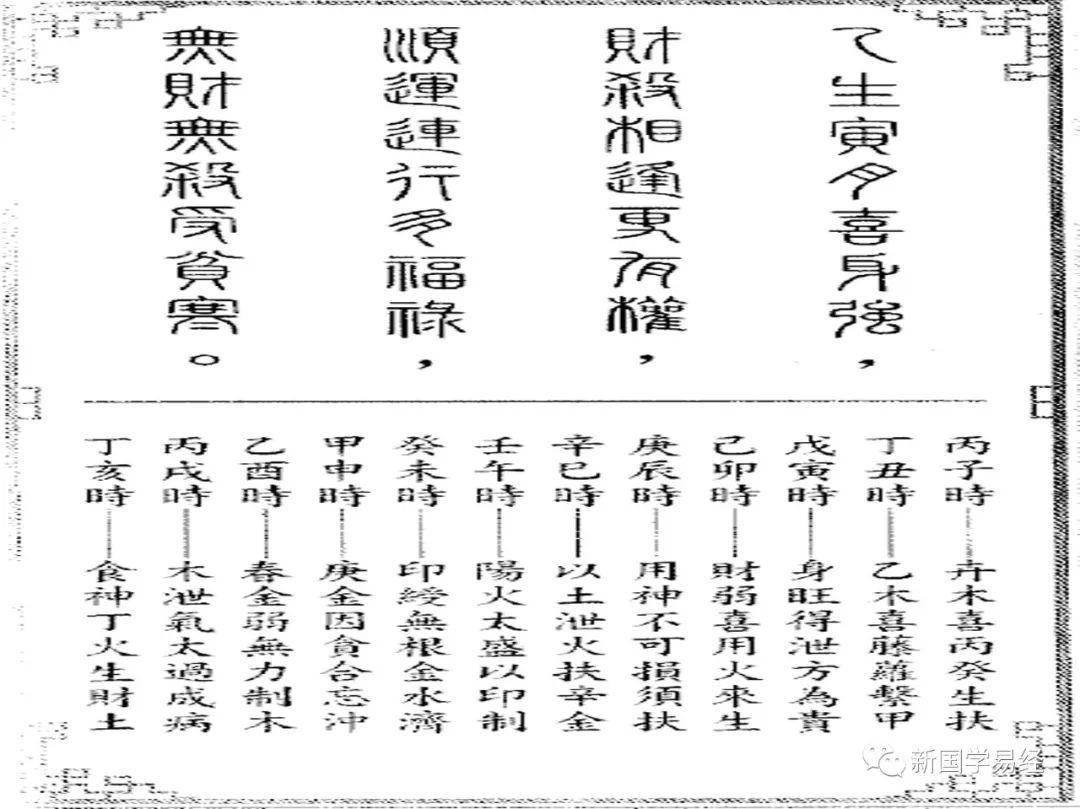 乙生寅月喜身強，
財殺相逢更有權，
順運連行多福祿，
無財無殺受貧寒。
丙子時——卉木喜丙癸生扶
丁丑時——乙木喜藤蘿繫甲
戊寅時——身旺得泄方為貴
己卯時——財弱喜用火來生
庚辰時——用神不可損須扶
辛巳時——以土泄火扶辛金
壬午時——陽火太盛以印制
癸未時——印綬無根金水濟
甲申時——庚金因貪合忘沖
乙酉時——春金弱無力制木
丙戌時——木泄氣太過成病
丁亥時——食神丁火生財土
新国学易经